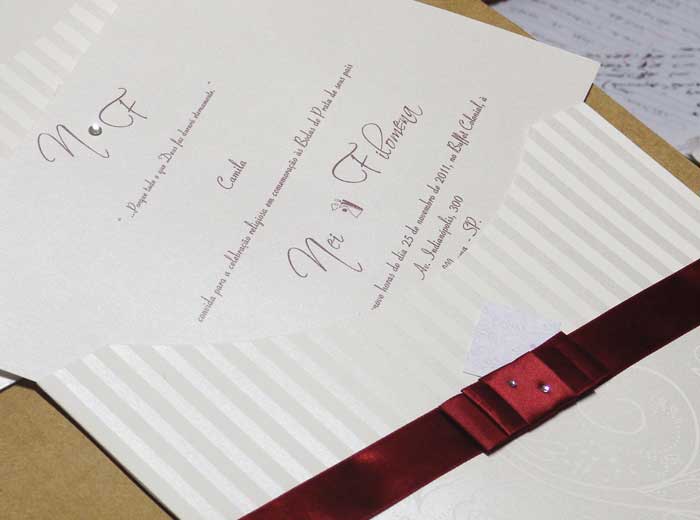 N F
"...Porque tudo o que Deus faz durará eternamente."
Camila
convida para a celebração religiosa em comemoração às Bodas de Prata de seus pais
Nei Filomena
nove horas do dia 25 de novembro de 2011, no Buffet Colonial, à
Av. Indianópolis, 300
- SP.